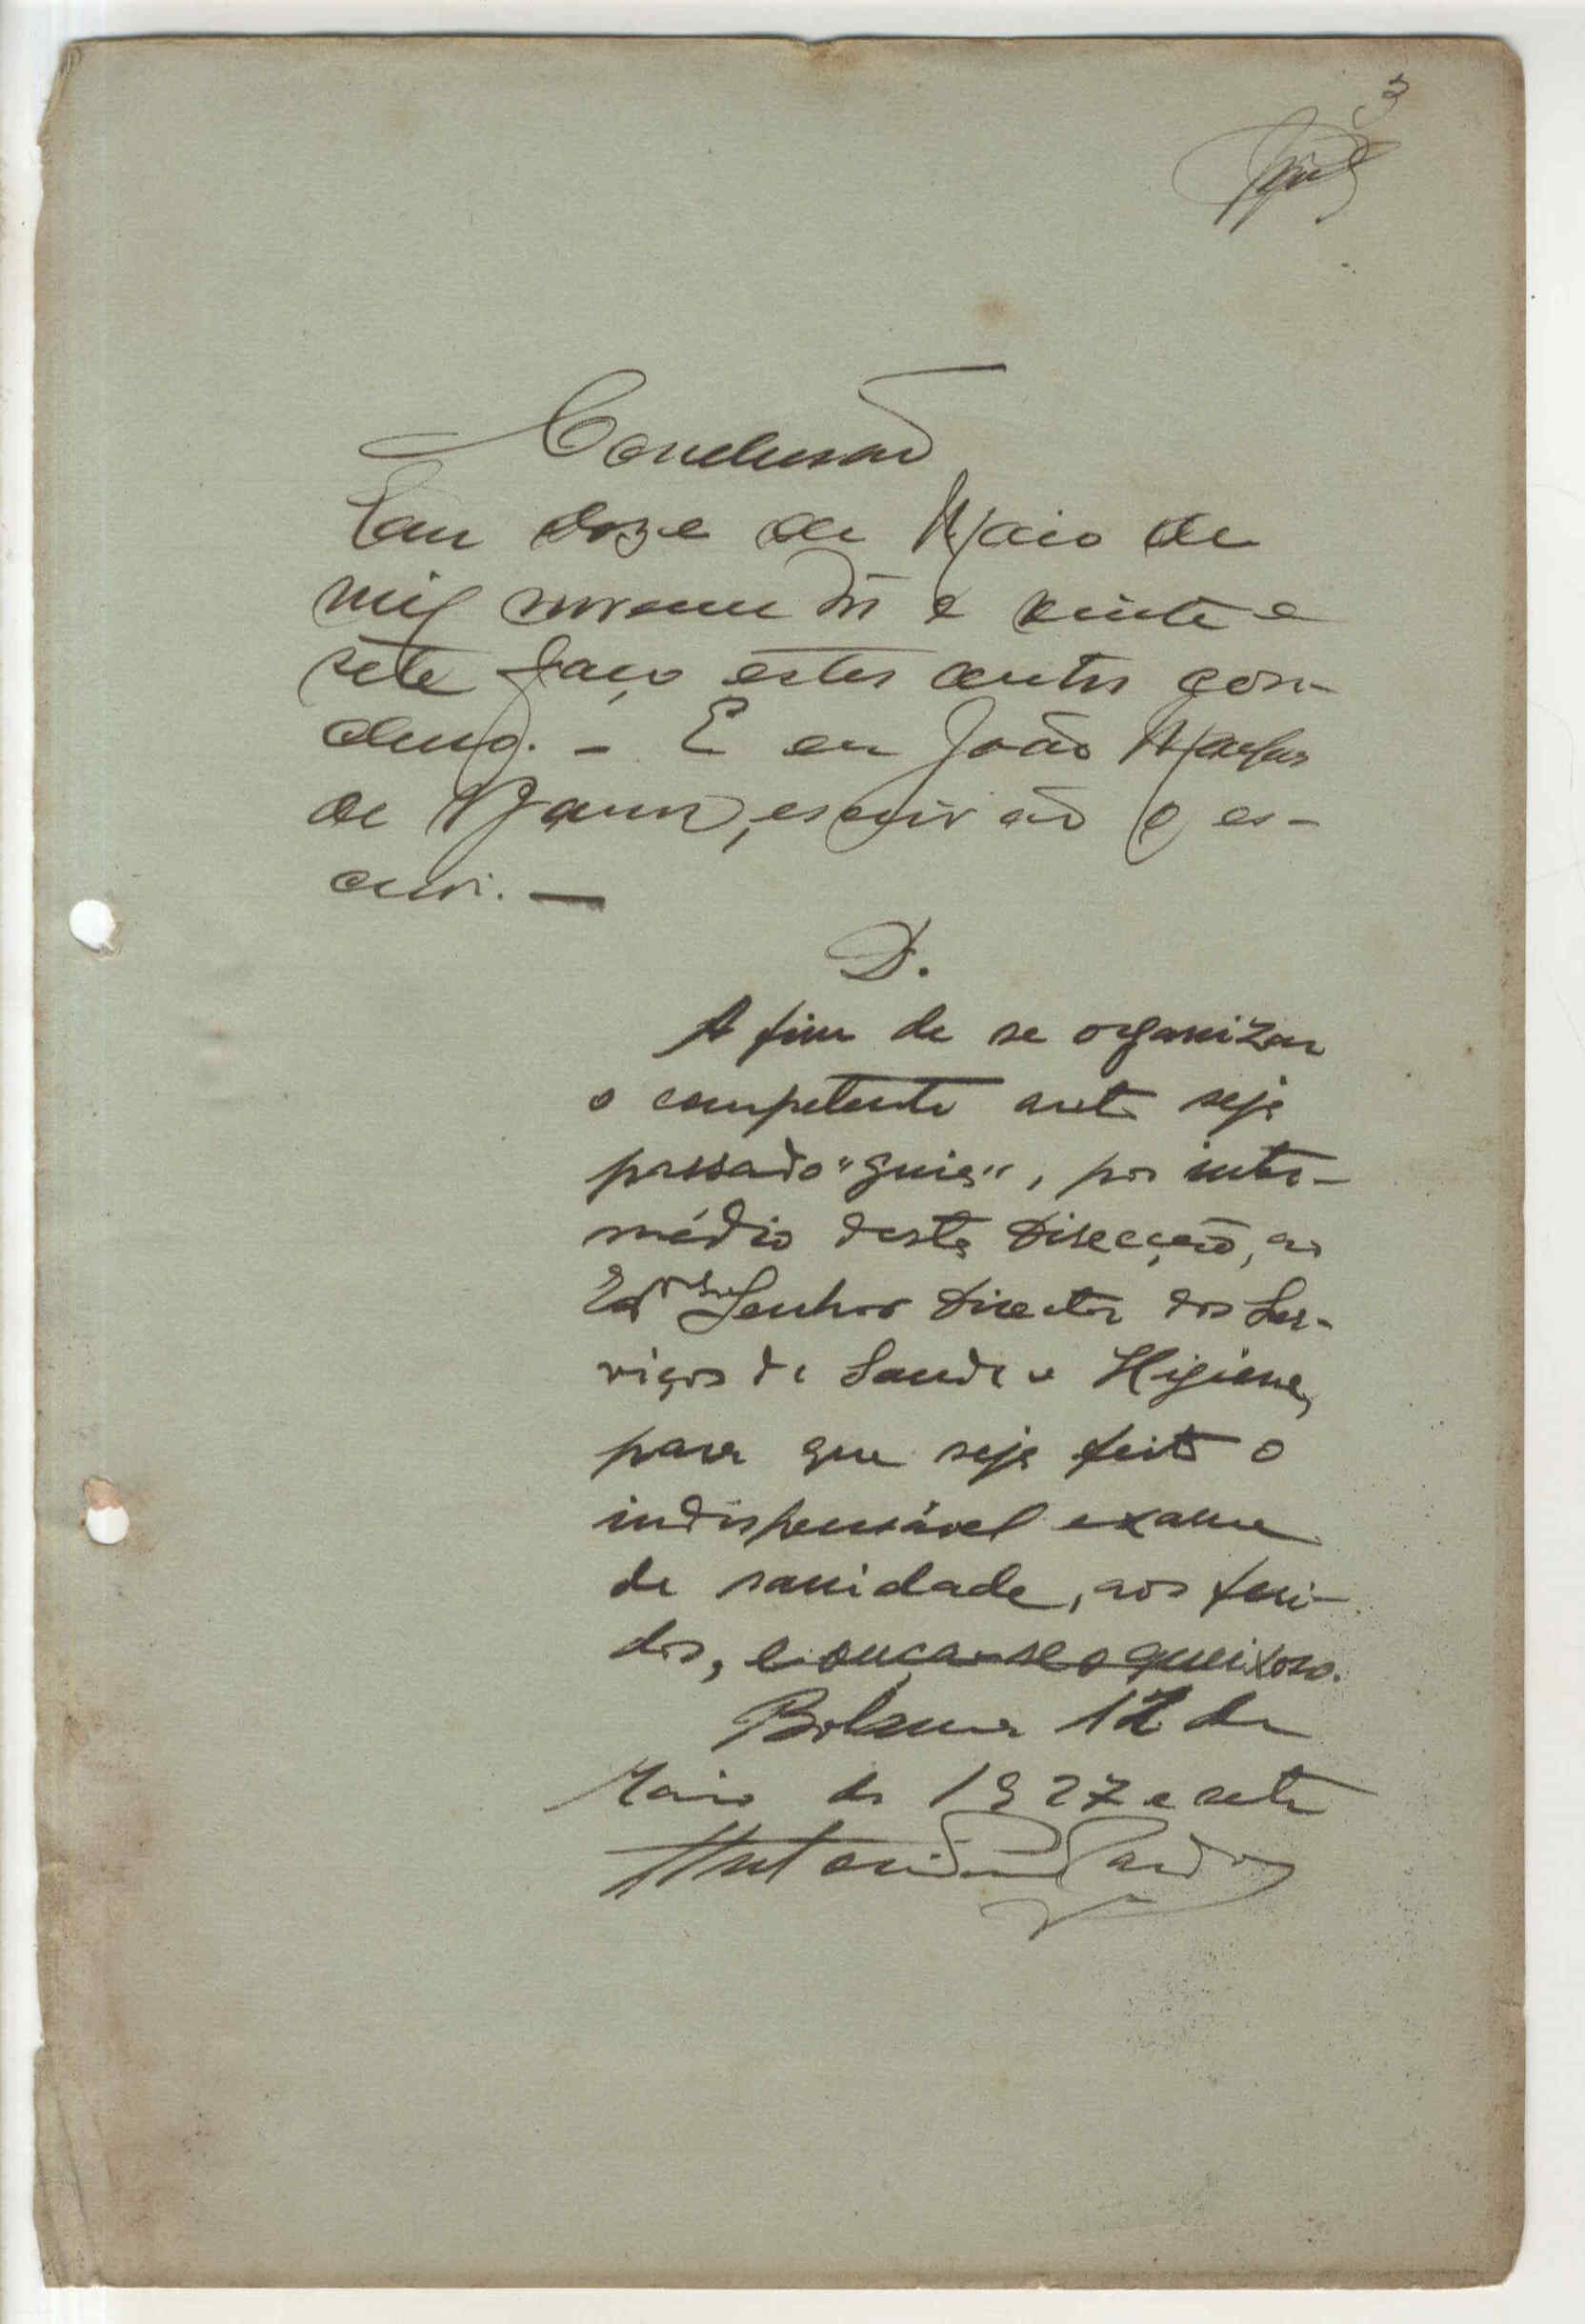 3
Conclusão
Em doze de Maio de
mil novecentos e vinte e
sete faço estes autos con-
clusos. - E eu João Marques
de Barros, escrivão o es-
crevi. —
D.
A fim de se organizar
o competente auto seja
passado "guia", por inter-
médio desta Direcção, ao
Exmo Senhor Director dos Ser-
viços de Saude e Higiene,
para que seja feito o
indispensável exame
de sanidade, aos feri-
dos, e ouça-se o queixoso.
Bolama 12 de
Maio de 1927 e sete